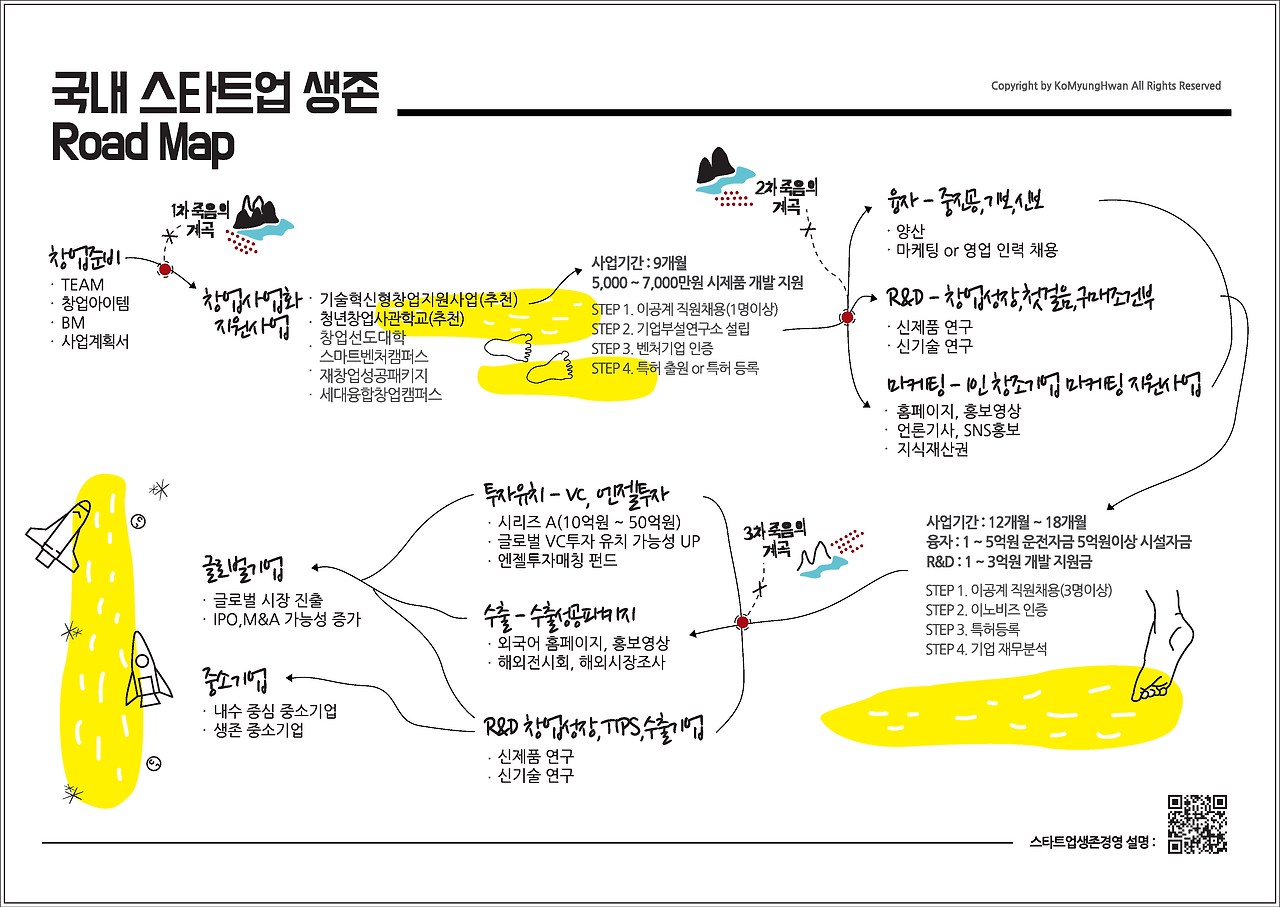 국내 스타트업 생존
Road Map
Copyright by KoMyungHwan All Rights Reserved
1차 죽음의
계곡
창업준비
· TEAM
· 창업아이템
· BM
· 사업계획서
창업사업화
지원사업
· 기술혁신형창업지원사업(추천)
· 청년창업사관학교(추천)
· 창업선도대학
· 스마트벤처캠퍼스
· 재창업성공패키지
· 세대융합창업캠퍼스
사업기간 : 9개월
5,000 ~ 7,000만원 시제품 개발 지원
STEP 1. 이공계 직원채용(1명이상)
STEP 2. 기업부설연구소 설립
STEP 3. 벤처기업 인증
STEP 4. 특허 출원 or 특허 등록
2차 죽음의
계곡
융자 - 중진공,기보,신보
· 양산
· 마케팅 or 영업 인력 채용
R&D - 창업성장,첫걸음,구매조건부
· 신제품 연구
· 신기술 연구
마케팅 - 1인 창조기업 마케팅 지원사업
· 홈페이지, 홍보영상
· 언론기사, SNS홍보
· 지식재산권
사업기간 : 12개월 ~ 18개월
융자 : 1 ~ 5억원 운전자금 5억원이상 시설자금
R&D : 1 ~ 3억원 개발 지원금
STEP 1. 이공계 직원채용(3명이상)
STEP 2. 이노비즈 인증
STEP 3. 특허등록
STEP 4. 기업 재무분석
3차 죽음의
계곡
투자유치 - VC, 엔젤투자
· 시리즈 A(10억원 ~ 50억원)
· 글로벌 VC투자 유치 가능성 UP
· 엔젤투자매칭 펀드
수출 - 수출성공패키지
· 외국어 홈페이지, 홍보영상
· 해외전시회, 해외시장조사
R&D 창업성장,TIPS,수출기업
· 신제품 연구
· 신기술 연구
글로벌기업
· 글로벌 시장 진출
· IPO,M&A 가능성 증가
중소기업
· 내수 중심 중소기업
· 생존 중소기업
스타트업생존경영 설명 :